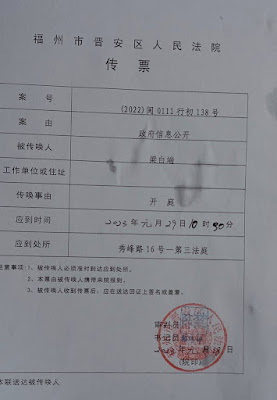 福州市晋安区人民法院
传票
案号 (2022)闽0111行初138号
案由 政府信息公开
被传唤人 梁白端
工作单位或住址
传唤事由 开庭
应到时间 2023年元月29日10时30分
应到处所 秀峰路16号一第三法庭
注意事项:1、被传唤人必须准时到达应到处所。
2、本票由被传唤人携带来院报到。
3、被传唤人收到传票后,应在送达回证上签名或盖章。
审判员
书记员
(院印)
本联送达被传唤人